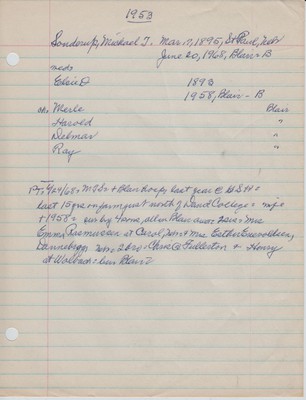 1953
Sonderup, Michael T. Mar. 17, 1895, St Paul, Nebr
June 20, 1968, Blair - B
Elsie D 1893
1958, Blair - B
ch. Merle Blair
Harold "
Delmar "
Ray "
6/24/68: Blair hosp; last year @
last 15 yrs on farm just north of Dana College = wife
+ 1958 = surv by 4 sons, all of Blair 2 sis = Mrs
Emma Rasmussen at Coral, Nebr + Mrs Esther Enevoldsen,
Dannebrog 2 bro: Chris @ Fullerton + Henry
at Wolbach = bur Blair